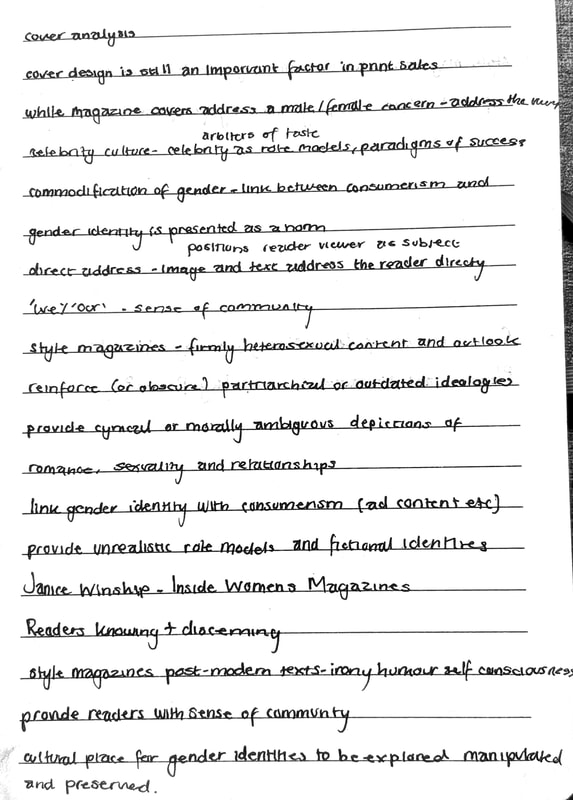 cover analysis
cover design is still an important factor in print sales
while magazine covers address a male/female concern - address the
arbiters of taste
celebrity culture - celebrity as role models, paradigms of success
commodification of gender - link between consumerism and
gender identity is presented as a norm
positions reader viewer as subject
direct address - image and text address the reader directy
'we'/'our' - sense of community
style magazines - firmly heterosexual content and outlook
reinforce (or obscure) partriarchical or outdated ideologies
provide cynical or morally ambiguous depictions of
romance, sexuality and relationships
link gender identity with consumerism (ad content etc)
provide unrealistic role models and fictional identities
Janice Winship - Inside Womens Magazines
Readers knowing + discerning
style magazines post-modern texts - irony humour self consciousness
provide readers with sense of community
cultural place for gender identities to be explored manipulated
and preserved.